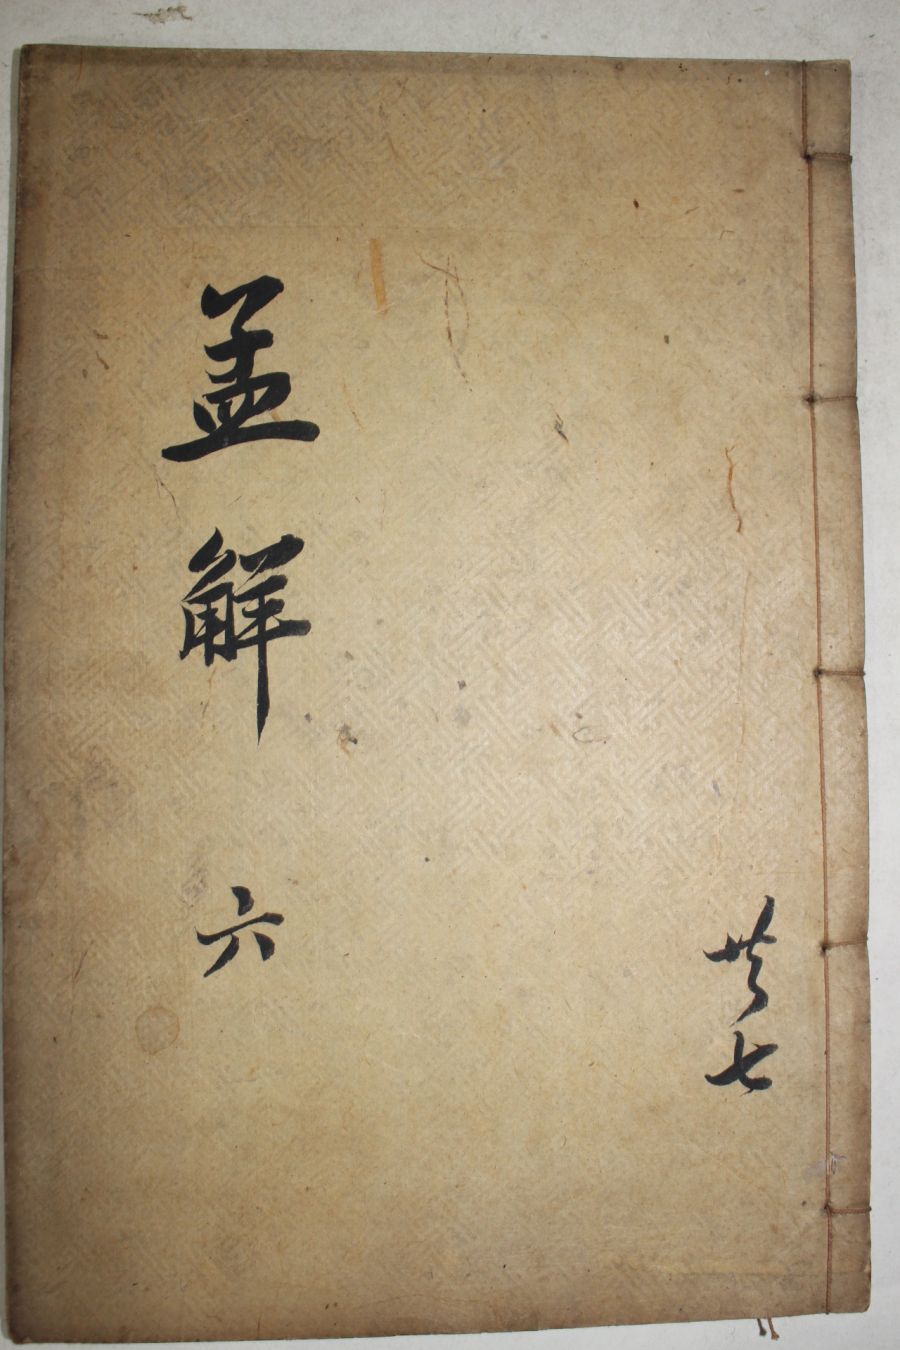 共七
孟解 六